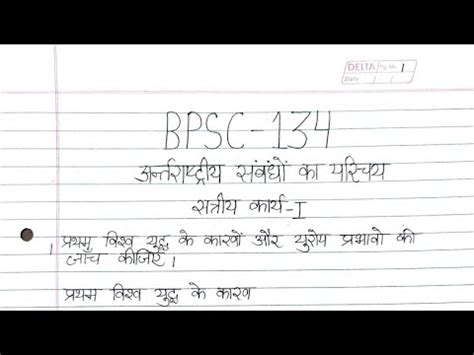 DELTA Pg No. 1
Date / /
BPSC-134
अर्न्तराष्ट्रीय संबंधों का परिचय
सत्रीय कार्य-I
1 प्रथम विश्व युद्ध के कारणों और युरोप प्रभावो की
जाँच कीजिए।
प्रथम विश्व युद्ध के कारण